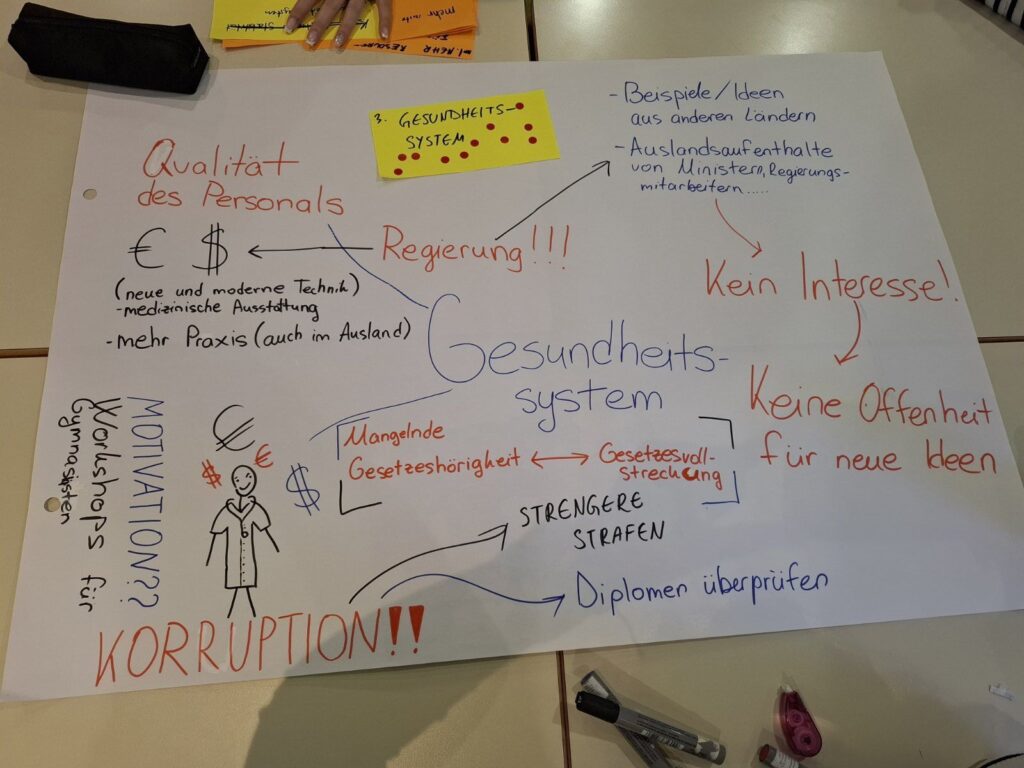 mehr
MEHR
3. GESUNDHEITS-
SYSTEM
- Beispiele/Ideen
aus anderen Ländern
- Auslandsaufenthalte
von Ministern, Regierungs-
mitarbeitern.....
Qualität
des Personals
€ $
Regierung!!!
(neue und moderne Technik)
-medizinische Ausstattung
-mehr Praxis (auch im Ausland)
Kein Interesse!
Keine Offenheit
für neue Ideen
Gesundheits-
system
Mangelnde
Gesetzeshörigkeit
Gesetzesvoll-
streckung
MOTIVATION??
Workshops für
Gymnasisten
€
$ € $
STRENGERE
STRAFEN
Diplomen überprüfen
KORRUPTION!!